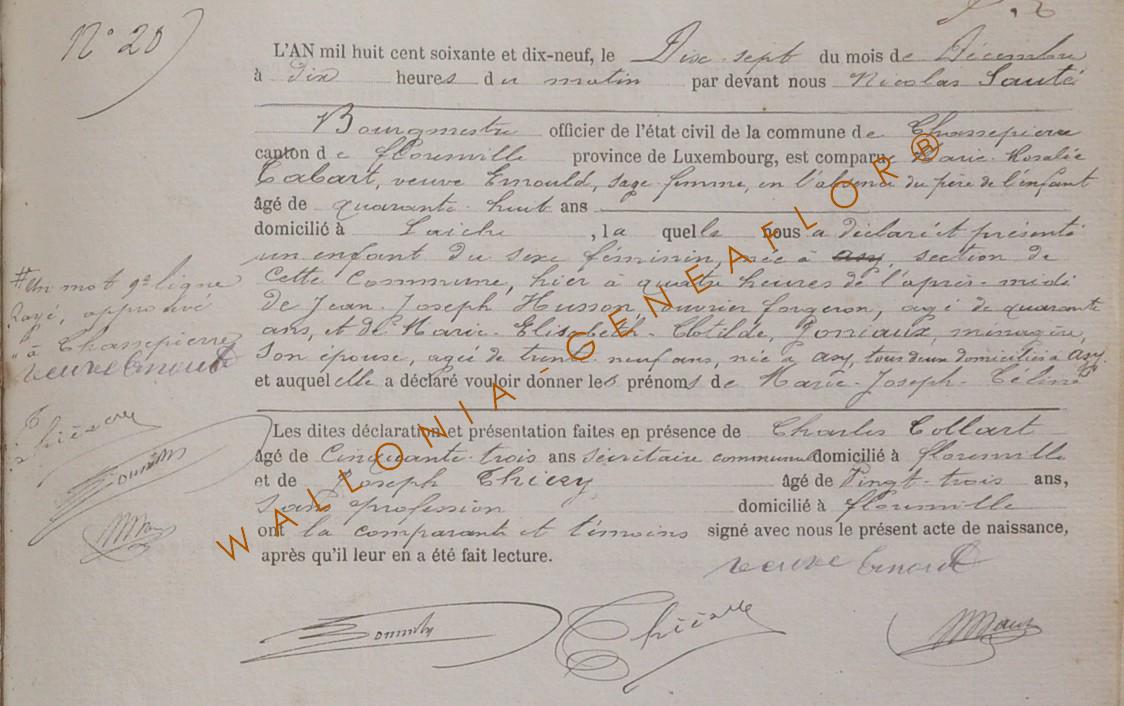 N° 20
L'AN mil huit cent soixante et dix-neuf, le Dix-sept du mois de Décembre
à dix heures du matin par devant nous Nicolas Sauté
Bourgmestre officier de l'état civil de la commune de Chassepierre
canton de florenville province de Luxembourg, est comparu Marie-Rosalie
Tabart, veuve Ernould, sage-femme, en l'absence du père de l'enfant
âgé de quarante-huit ans
domicilié à Laiche, la quelle nous a déclaré et présenté
un enfant du sexe féminin, née à azy, section de
Cette Commune, hier à quatre heures de l'après-midi
de Jean-Joseph Husson, ouvrier forgeron, agé de quarante
ans, et de Marie-Elisabeth-Clotilde, Poniaux, ménagère,
son épouse, agée de trente neuf ans, née à azy, tous deux domiciliés à azy.
et auquel elle a déclaré vouloir donner les prénoms de Marie-Joseph-Céline
# Un mot 9e ligne
Rayé, approuvé
"à Chassepierre
veuve Ernould
Thiéry
Les dites déclaration et présentation faites en présence de Charles Collart
âgé de Cinquante-trois ans secrétaire communal domicilié à florenville
et de Joseph Thiéry âgé de Vingt-trois ans,
sans profession domicilié à florenville
ont la comparante et témoins signé avec nous le présent acte de naissance,
après qu'il leur en a été fait lecture.
veuve Ernould
Thiéry
WALLONIA-GENEAFLOR®